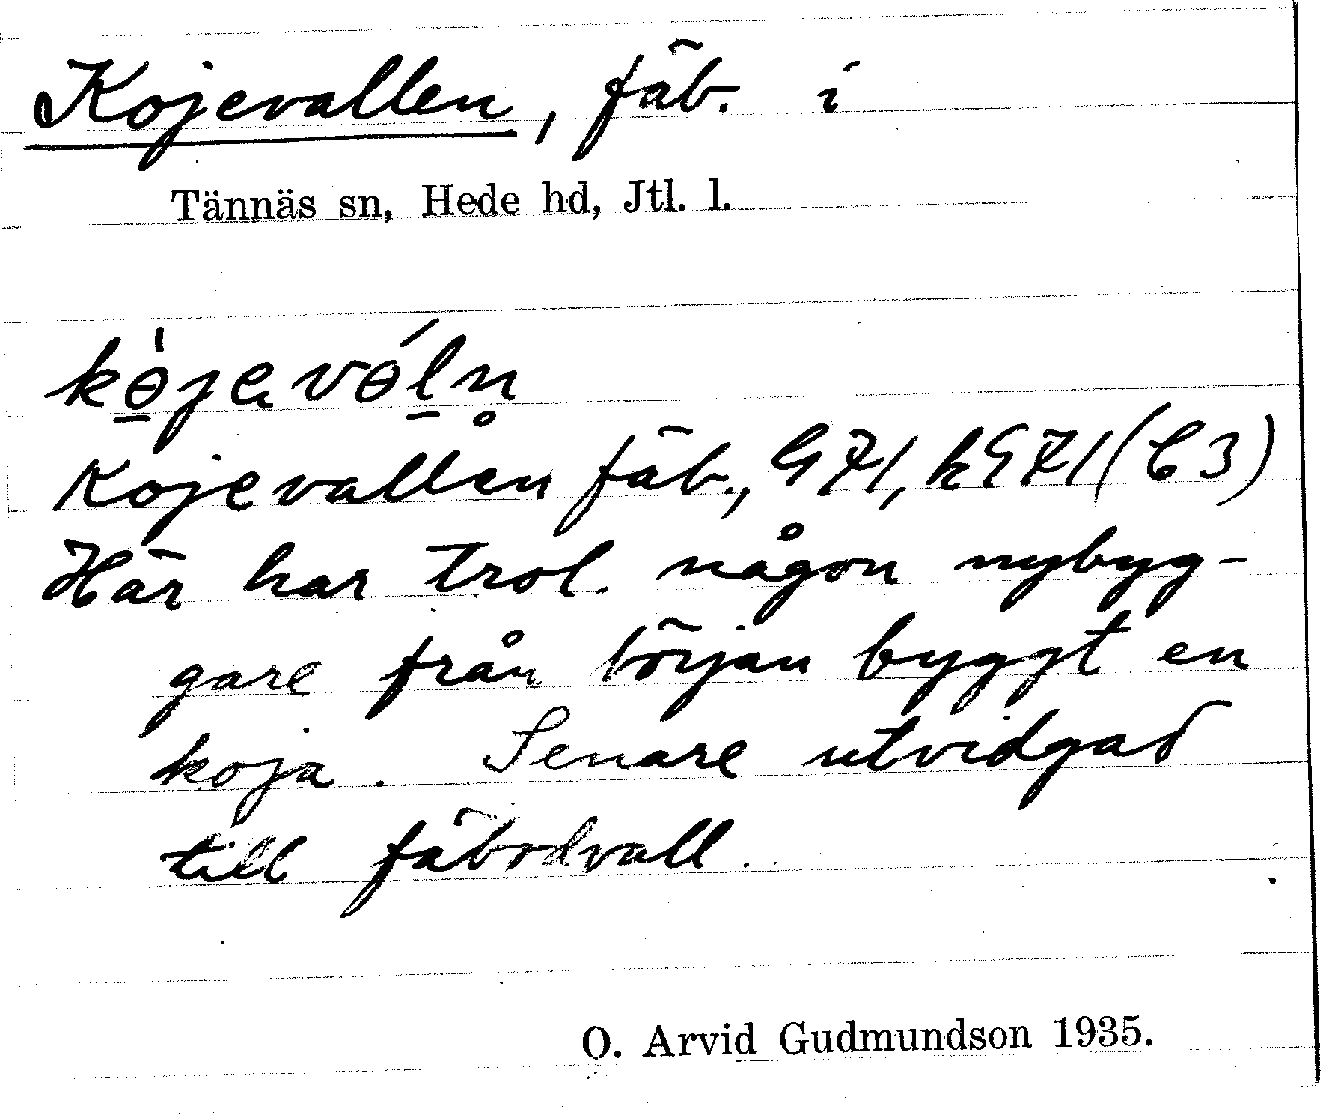 Kojevallen, fäb. i
Tännäs sn, Hede hd, Jtl. l.
Kojevallen fäb., G71, kG71 (C3)
Här har trol. någon nybyg-
gare från början byggt en
koja. Senare utvidgad
till fäbodvall.
O. Arvid Gudmundson 1935.